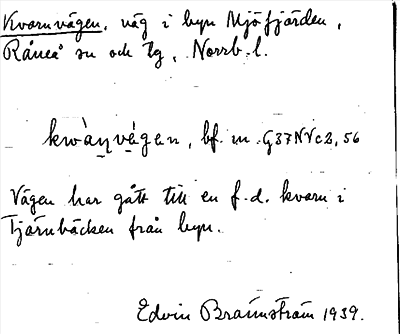 Kvarnvägen, väg i byn Mjöfjärden,
Råneå sn och tg, Norrb. l.
kwàṉvá̱gen, bf. m. G37NVc2,56
Vägen har gått till en f.d. kvarn i
Tjärnbäcken från byn.
Edvin Brännström 1939.